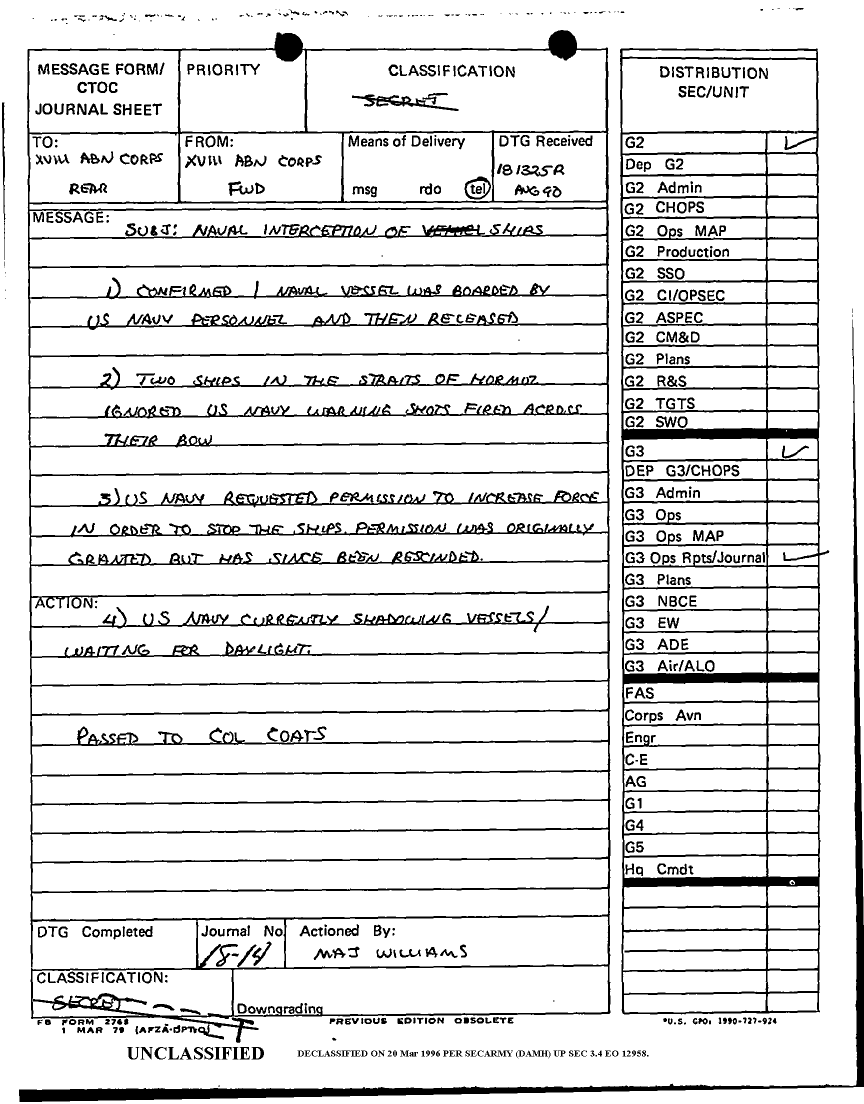 MESSAGE FORM/
CTOC
JOURNAL SHEET
PRIORITY
CLASSIFICATION
SECRET
TO:
XVIII ABN CORPS
REAR
FROM:
XVIII ABN CORPS
FWD
Means of Delivery
msg rdo tel
DTG Received
181325R
AUG 90
MESSAGE:
SUBJ: NAVAL INTERCEPTION OF VESSEL SHIPS
1) CONFIRMED 1 NAVAL VESSEL WAS BOARDED BY
US NAVY PERSONNEL AND THEN RELEASED
2) TWO SHIPS IN THE STRAITS OF HORMUZ
IGNORED US NAVY WARNING SHOTS FIRED ACROSS
THEIR BOW
3) US NAVY REQUESTED PERMISSION TO INCREASE FORCE
IN ORDER TO STOP THE SHIPS. PERMISSION WAS ORIGINALLY
GRANTED BUT HAS SINCE BEEN RESCINDED.
ACTION:
4) US NAVY CURRENTLY SHADOWING VESSELS/
WAITING FOR DAYLIGHT.
PASSED TO COL COATS
DTG Completed
Journal No
18-14
Actioned By:
MAJ WILLIAMS
CLASSIFICATION:
SECRET
Downgrading
FB FORM 2768
1 MAR 79 (AFZA-DPTM-O)
PREVIOUS EDITION OBSOLETE
DISTRIBUTION
SEC/UNIT
G2
Dep G2
G2 Admin
G2 CHOPS
G2 Ops MAP
G2 Production
G2 SSO
G2 CI/OPSEC
G2 ASPEC
G2 CM&D
G2 Plans
G2 R&S
G2 TGTS
G2 SWO
G3
DEP G3/CHOPS
G3 Admin
G3 Ops
G3 Ops MAP
G3 Ops Rpts/Journal
G3 Plans
G3 NBCE
G3 EW
G3 ADE
G3 Air/ALO
FAS
Corps Avn
Engr
C-E
AG
G1
G4
G5
Hq Cmdt
*U.S. GPO: 1990-727-924
UNCLASSIFIED
DECLASSIFIED ON 20 Mar 1996 PER SECARMY (DAMH) UP SEC 3.4 EO 12958.